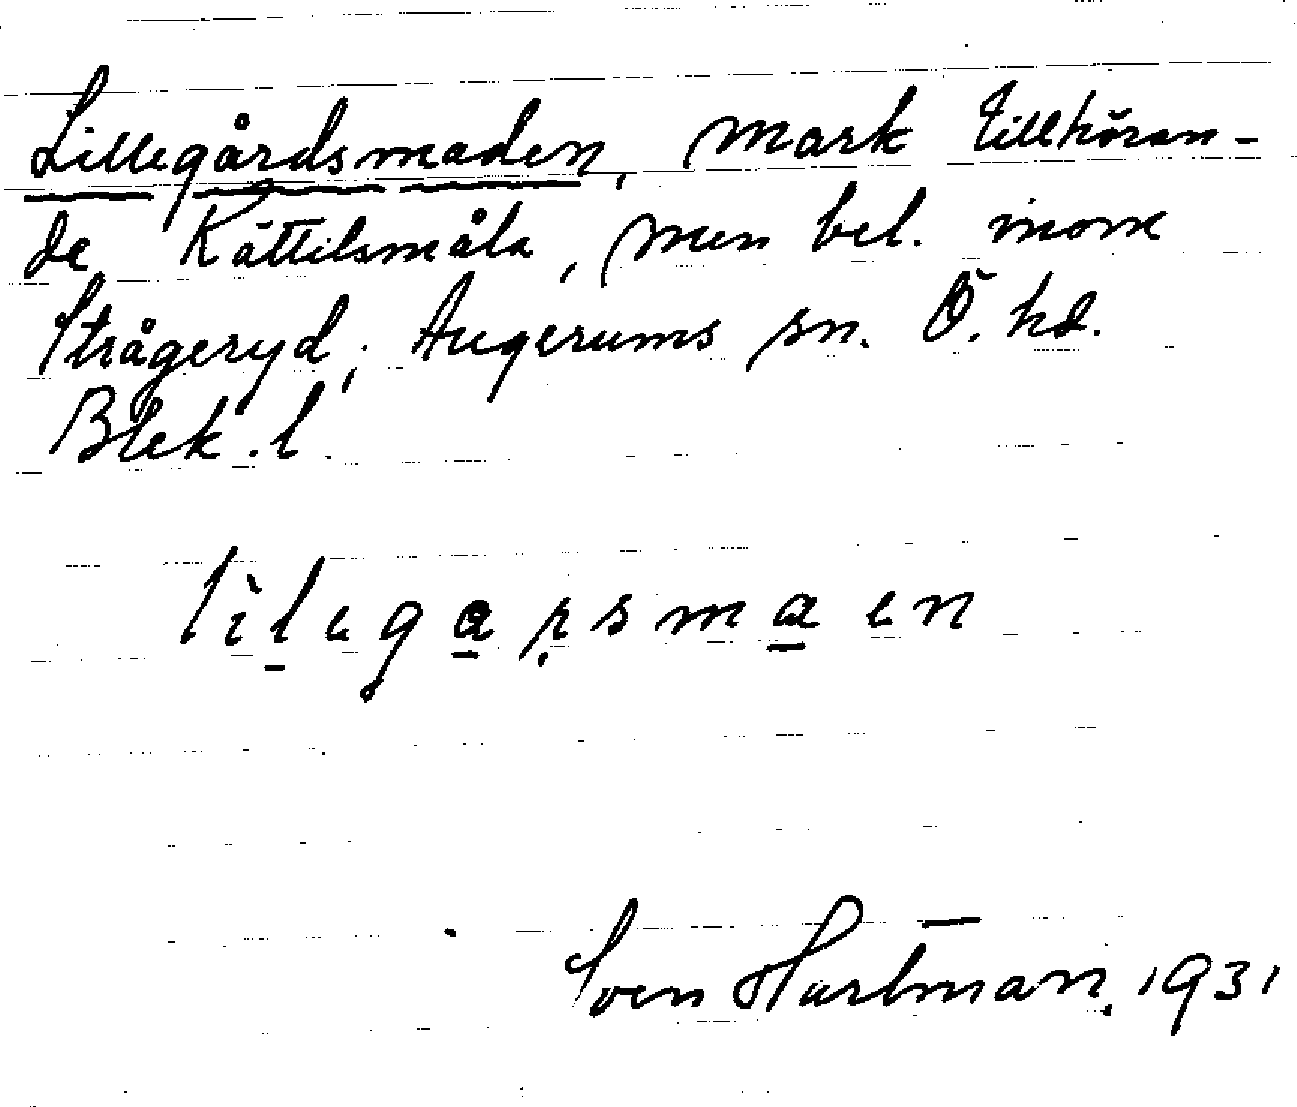 Lillegårdsmaden, mark tillhöran-
de Kättilsmåla, men bel. inom
Strågeryd, Augerums sn. Ö. hd.
Blek. l.
lìlegarsmaen
Sven Hartman. 1931